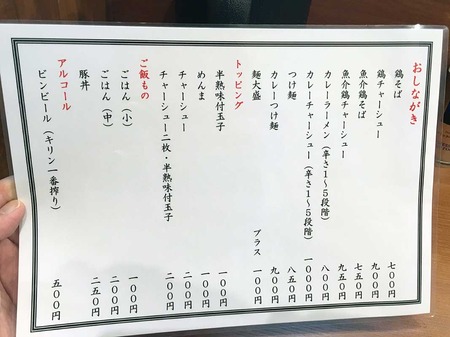 おしながき
鶏そば 七〇〇円
鶏チャーシュー 九〇〇円
魚介鶏そば 七五〇円
魚介鶏チャーシュー 九五〇円
カレーラーメン（辛さ1～5段階） 八〇〇円
カレーチャーシュー（辛さ1～5段階） 一〇〇〇円
つけ麺 八五〇円
カレーつけ麺 九〇〇円
麺大盛 プラス 一〇〇円
トッピング
半熟味付玉子 一〇〇円
めんま 一〇〇円
チャーシュー 二〇〇円
チャーシュー二枚・半熟味付玉子 二〇〇円
ご飯もの
ごはん（小） 一〇〇円
ごはん（中） 二〇〇円
豚丼 二五〇円
アルコール
ビンビール（キリン一番搾り） 五〇〇円